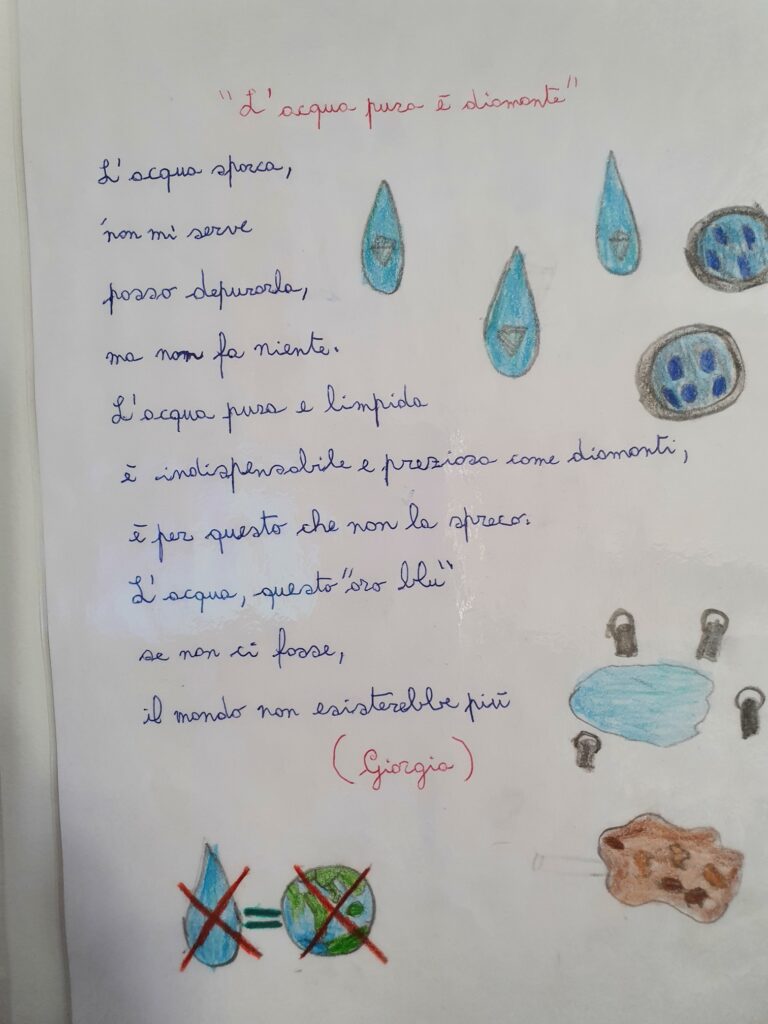 "L'acqua pura è diamante"
L'acqua sporca,
non mi serve
posso depurarla,
ma non fa niente.
L'acqua pura e limpida
è indispensabile e preziosa come diamanti,
è per questo che non la spreco.
L'acqua, questo "oro blu"
se non ci fosse,
il mondo non esisterebbe più
(Giorgia)